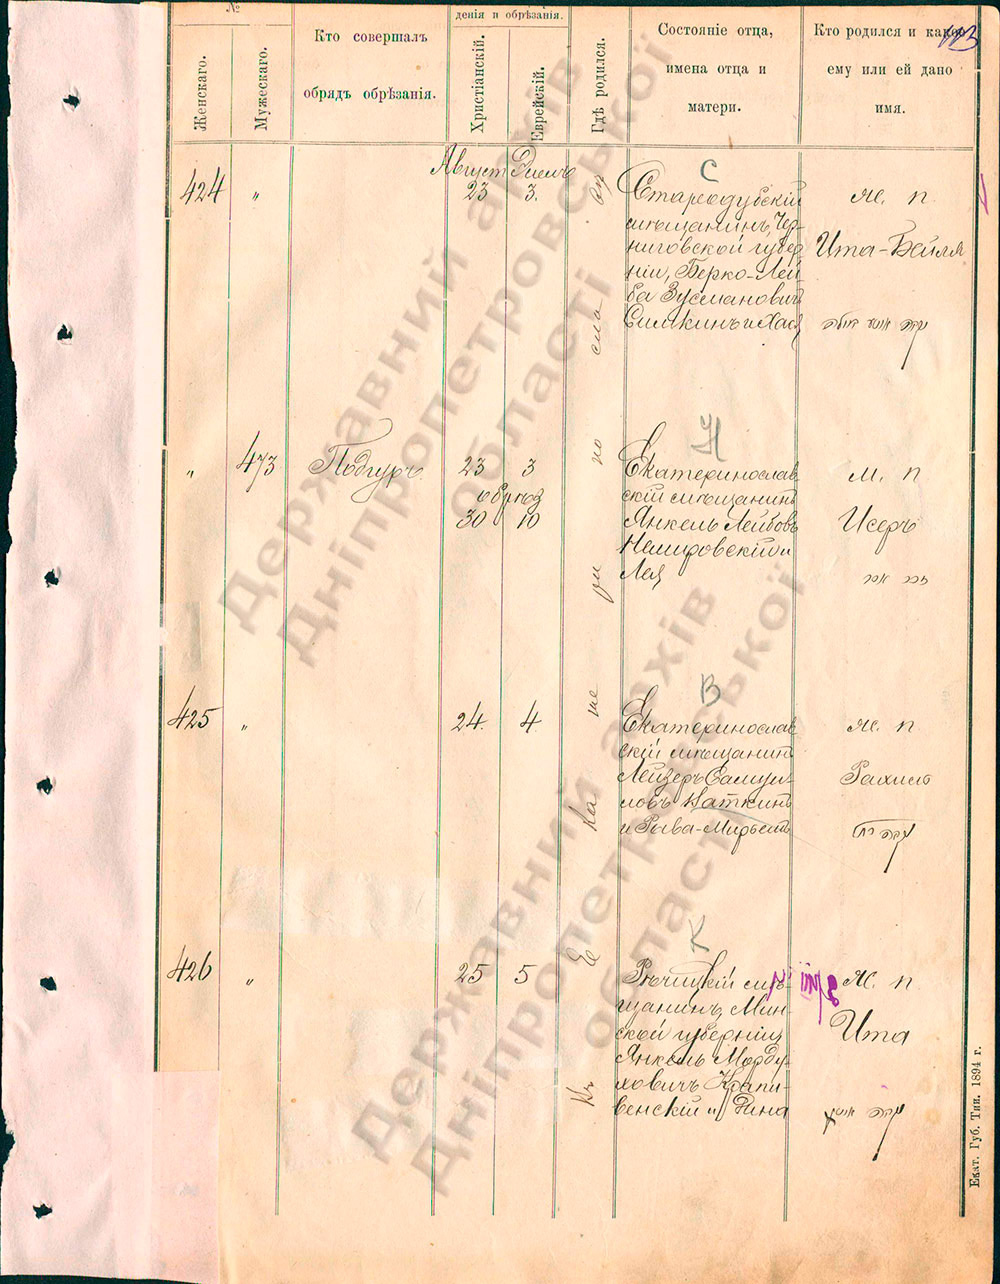 №
Женскаго.
Мужескаго.
Кто совершалъ
обрядъ обрѣзанія.
денія и обрѣзанія.
Христіанскій.
Еврейскій.
Гдѣ родился.
Состояніе отца,
имена отца и
матери.
Кто родился и какое
ему или ей дано
имя.
113
Август Элелъ
424 „ 23 3.
С
Стародубскій
мѣщанинъ, Чер-
ниговской губер
ніи, Берко-Лей
ба Зусманович
Симкинъ и Хася
Ж. п.
Ита-Бейля
„ 473 Подгуръ 23 3
обрѣз
30 10
Н
Екатеринослав-
скій мѣщанинъ
Янкель Лейбовъ
Немировскій и
Лея
м. п
Исеръ
425 „ 24. 4
В
Екатеринослав
скій мѣщанинъ
Лейзеръ Самуи-
ловъ
и Рива-Мирьемъ
Ж. п.
Рахиль
426 „ 25 5
К
Рѣчицкій мѣ-
щанинъ, Мин-
ской губерніи,
Янкель Морду-
ховичъ Крапи-
венскій и Рина
Ж. п.
Ита
Ека
те
ри
но
сла
Екат. Губ. Тип. 1894 г.
Державний архів
Дніпропетровської
області
Державний архів
Дніпропетровської
області